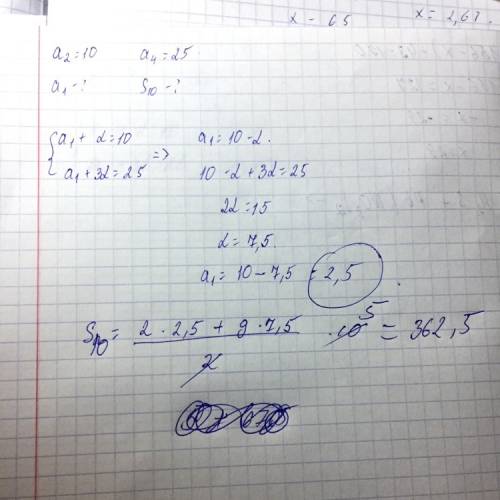 x - 65 x = 2,67.
a2 = 10 a4 = 25.
a1 - ? S10 - ?
{ a1 + d = 10 => a1 = 10 - d.
a1 + 3d = 25 10 - d + 3d = 25
2d = 15
d = 7,5.
a1 = 10 - 7,5 = 2,5.
S10 = (2 · 2,5 + 9 · 7,5) / 2 · 10 5 = 362,5